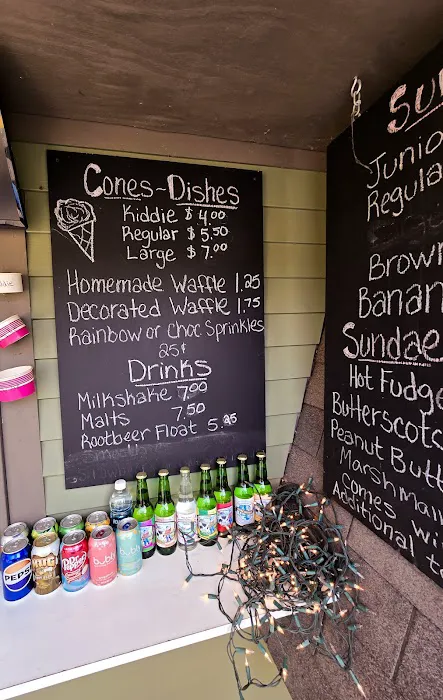 Cones~Dishes
Kiddie $4.00
Regular $5.50
Large $7.00
Homemade Waffle 1.25
Decorated Waffle 1.75
Rainbow or Choc Sprinkles
25¢
Drinks
Milkshake 7.00
Malts 7.50
Rootbeer Float 5.25
Su
Junio
Regula
Brown
Banan
Sundae
Hot Fudge
Butterscotc
Peanut Butt
Marshmall
comes wi
Additional to
PEPSI
bubly
bubly